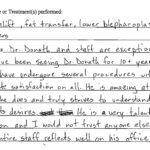 e or Treatment(s) performed:
elift, fat transfer, lower blepharoplas
ers
Dr Donath and staff are exception
ve been seeing Dr Donath for 10+ years
have undergone several procedures wit
te satisfaction on all. He is amazing at
he does and truly strives to understand
ts desires. He is a very talen
on and I would not trust anyone else
entire staff reflects well on his office